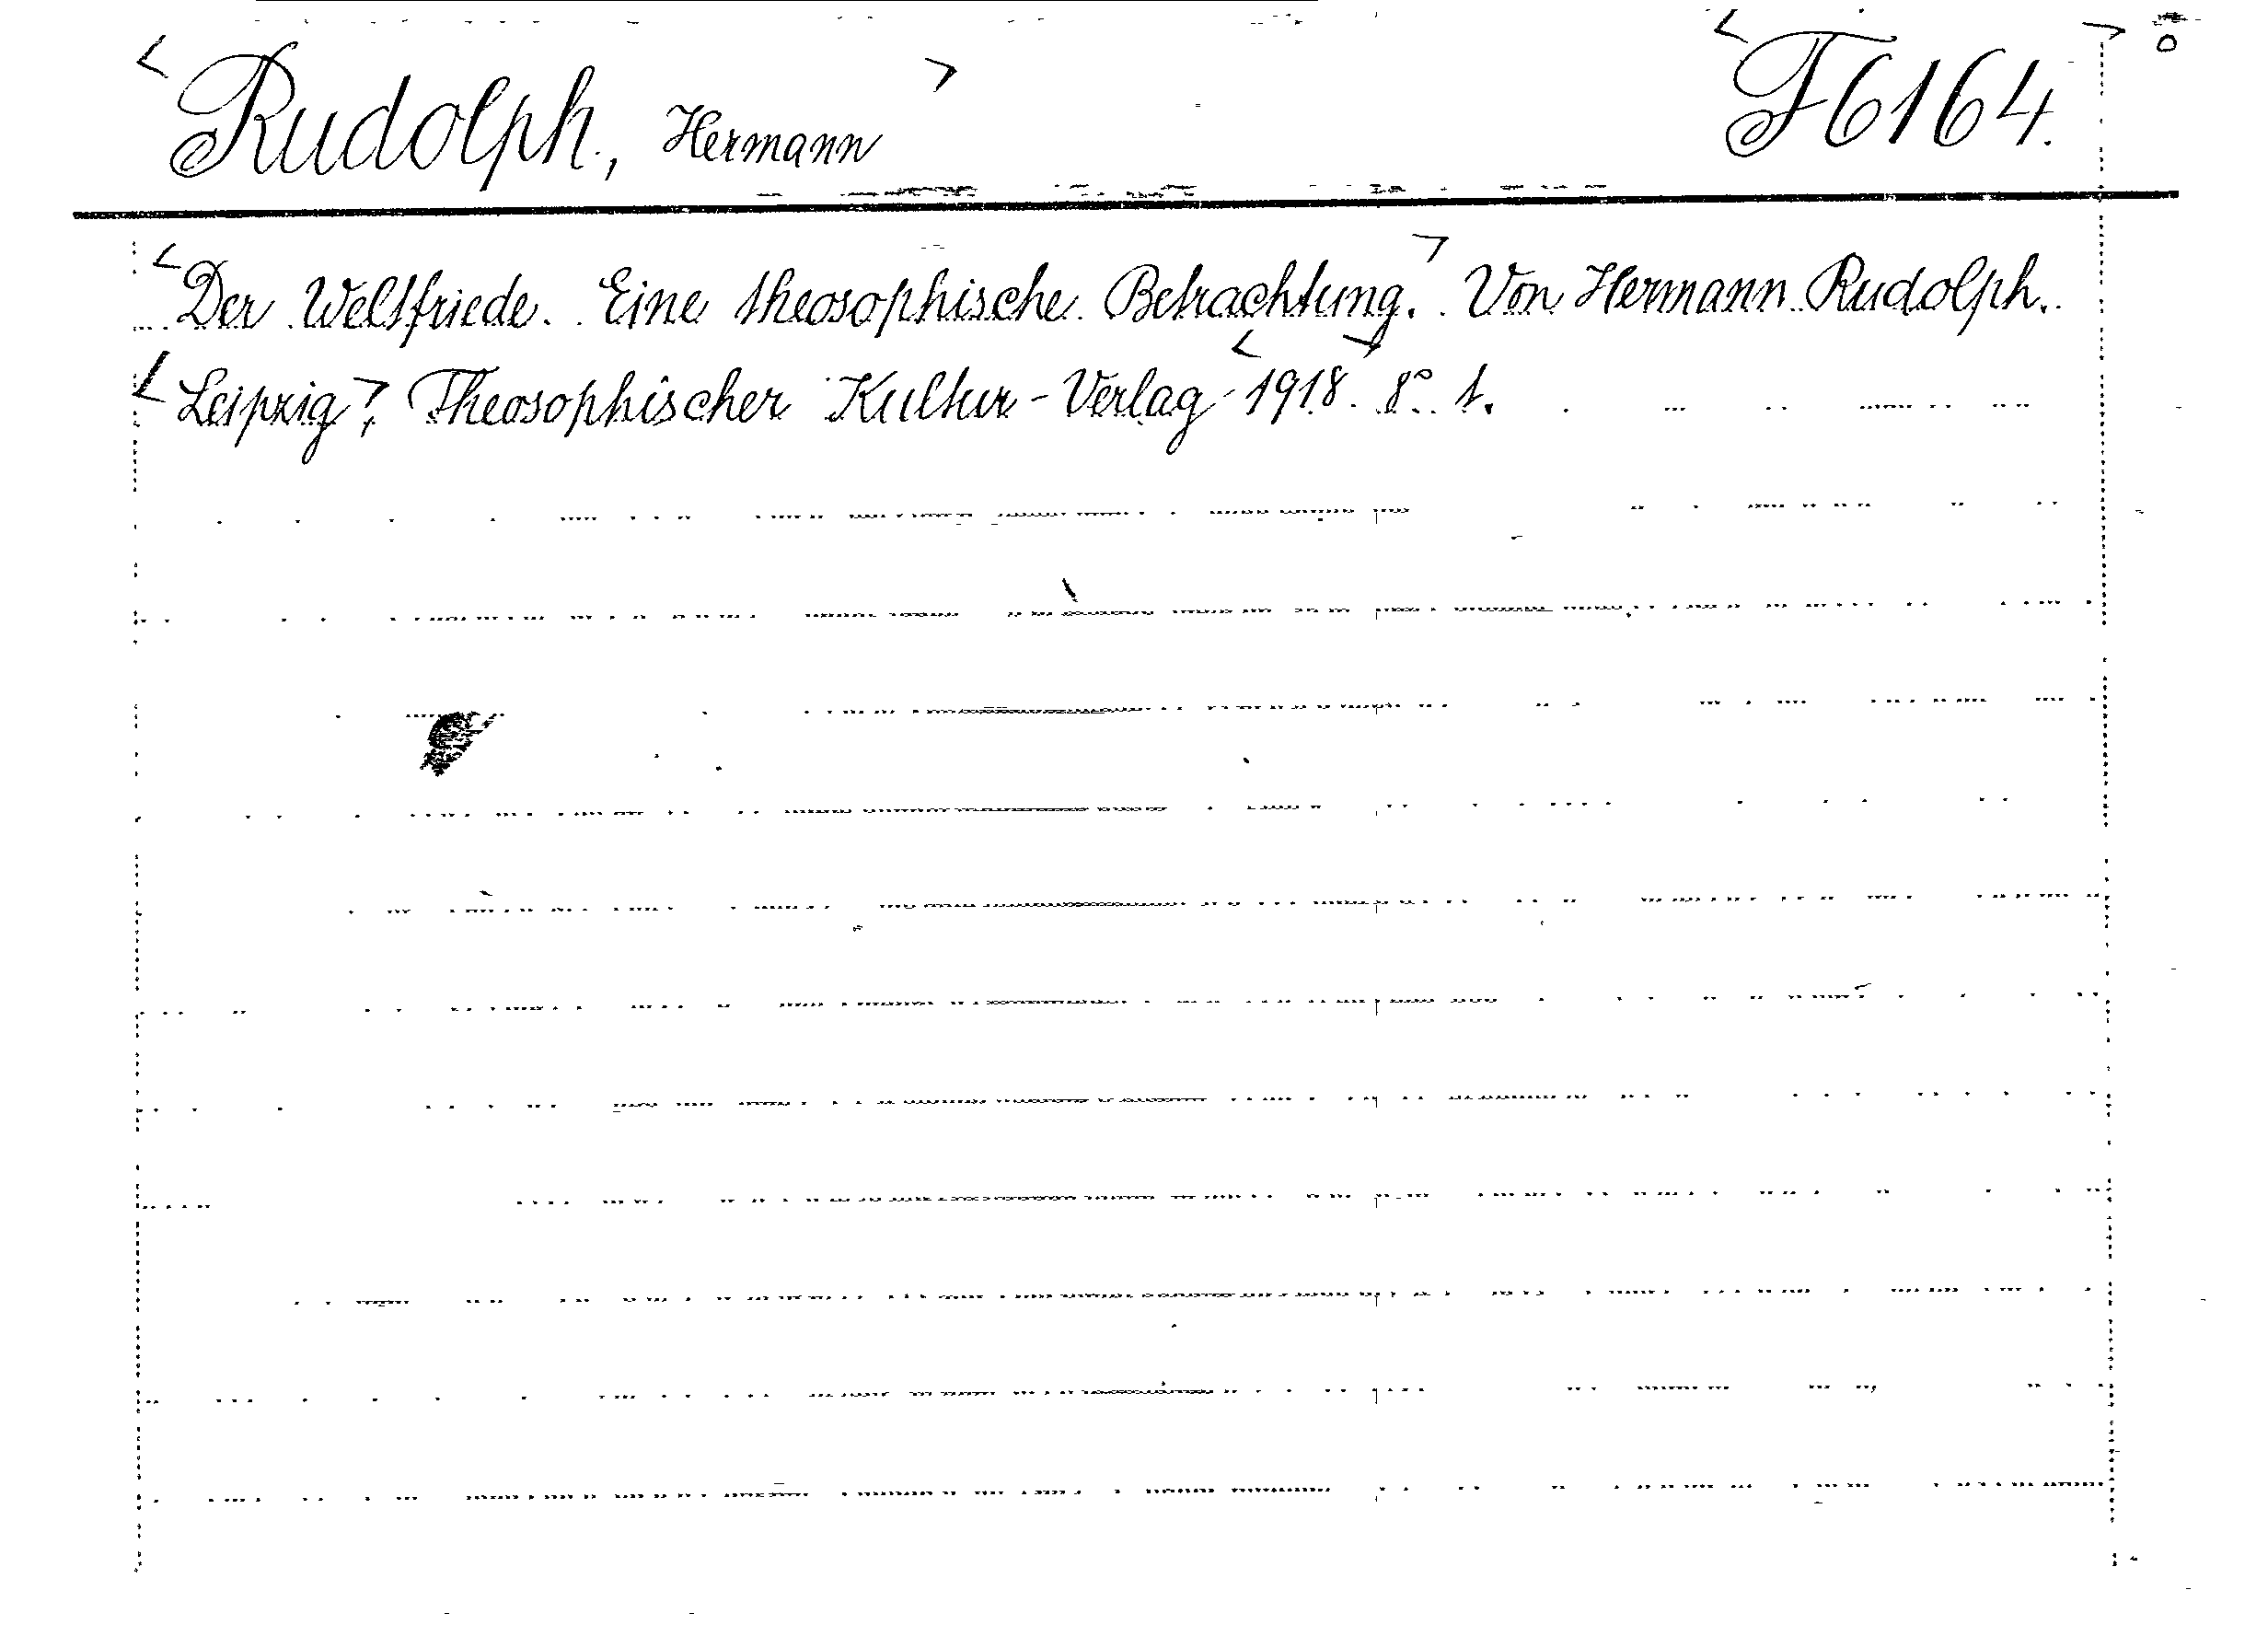 <Rudolph, Hermann> <F6164.> o
<Der Weltfriede. Eine theosophische Betrachtung.> Von Hermann Rudolph.
<Leipzig>, Theosophischer Kultur-Verlag <1918> 8° 1.